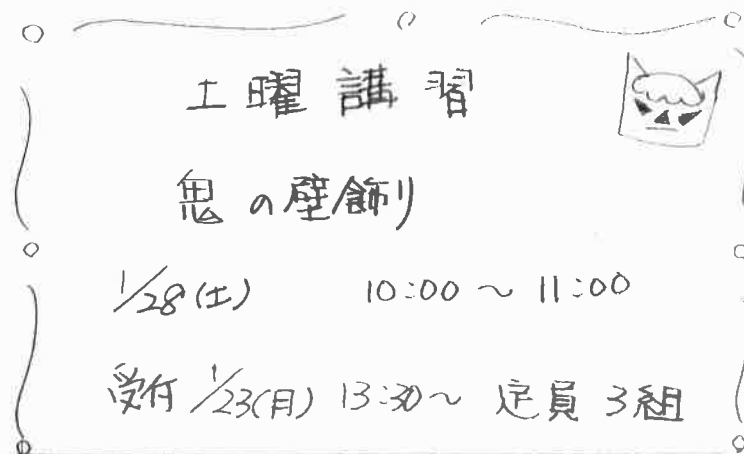 土曜講習
鬼の壁飾り
1/28(土) 10:00～11:00
受付 1/23(月) 13:30～ 定員 3組